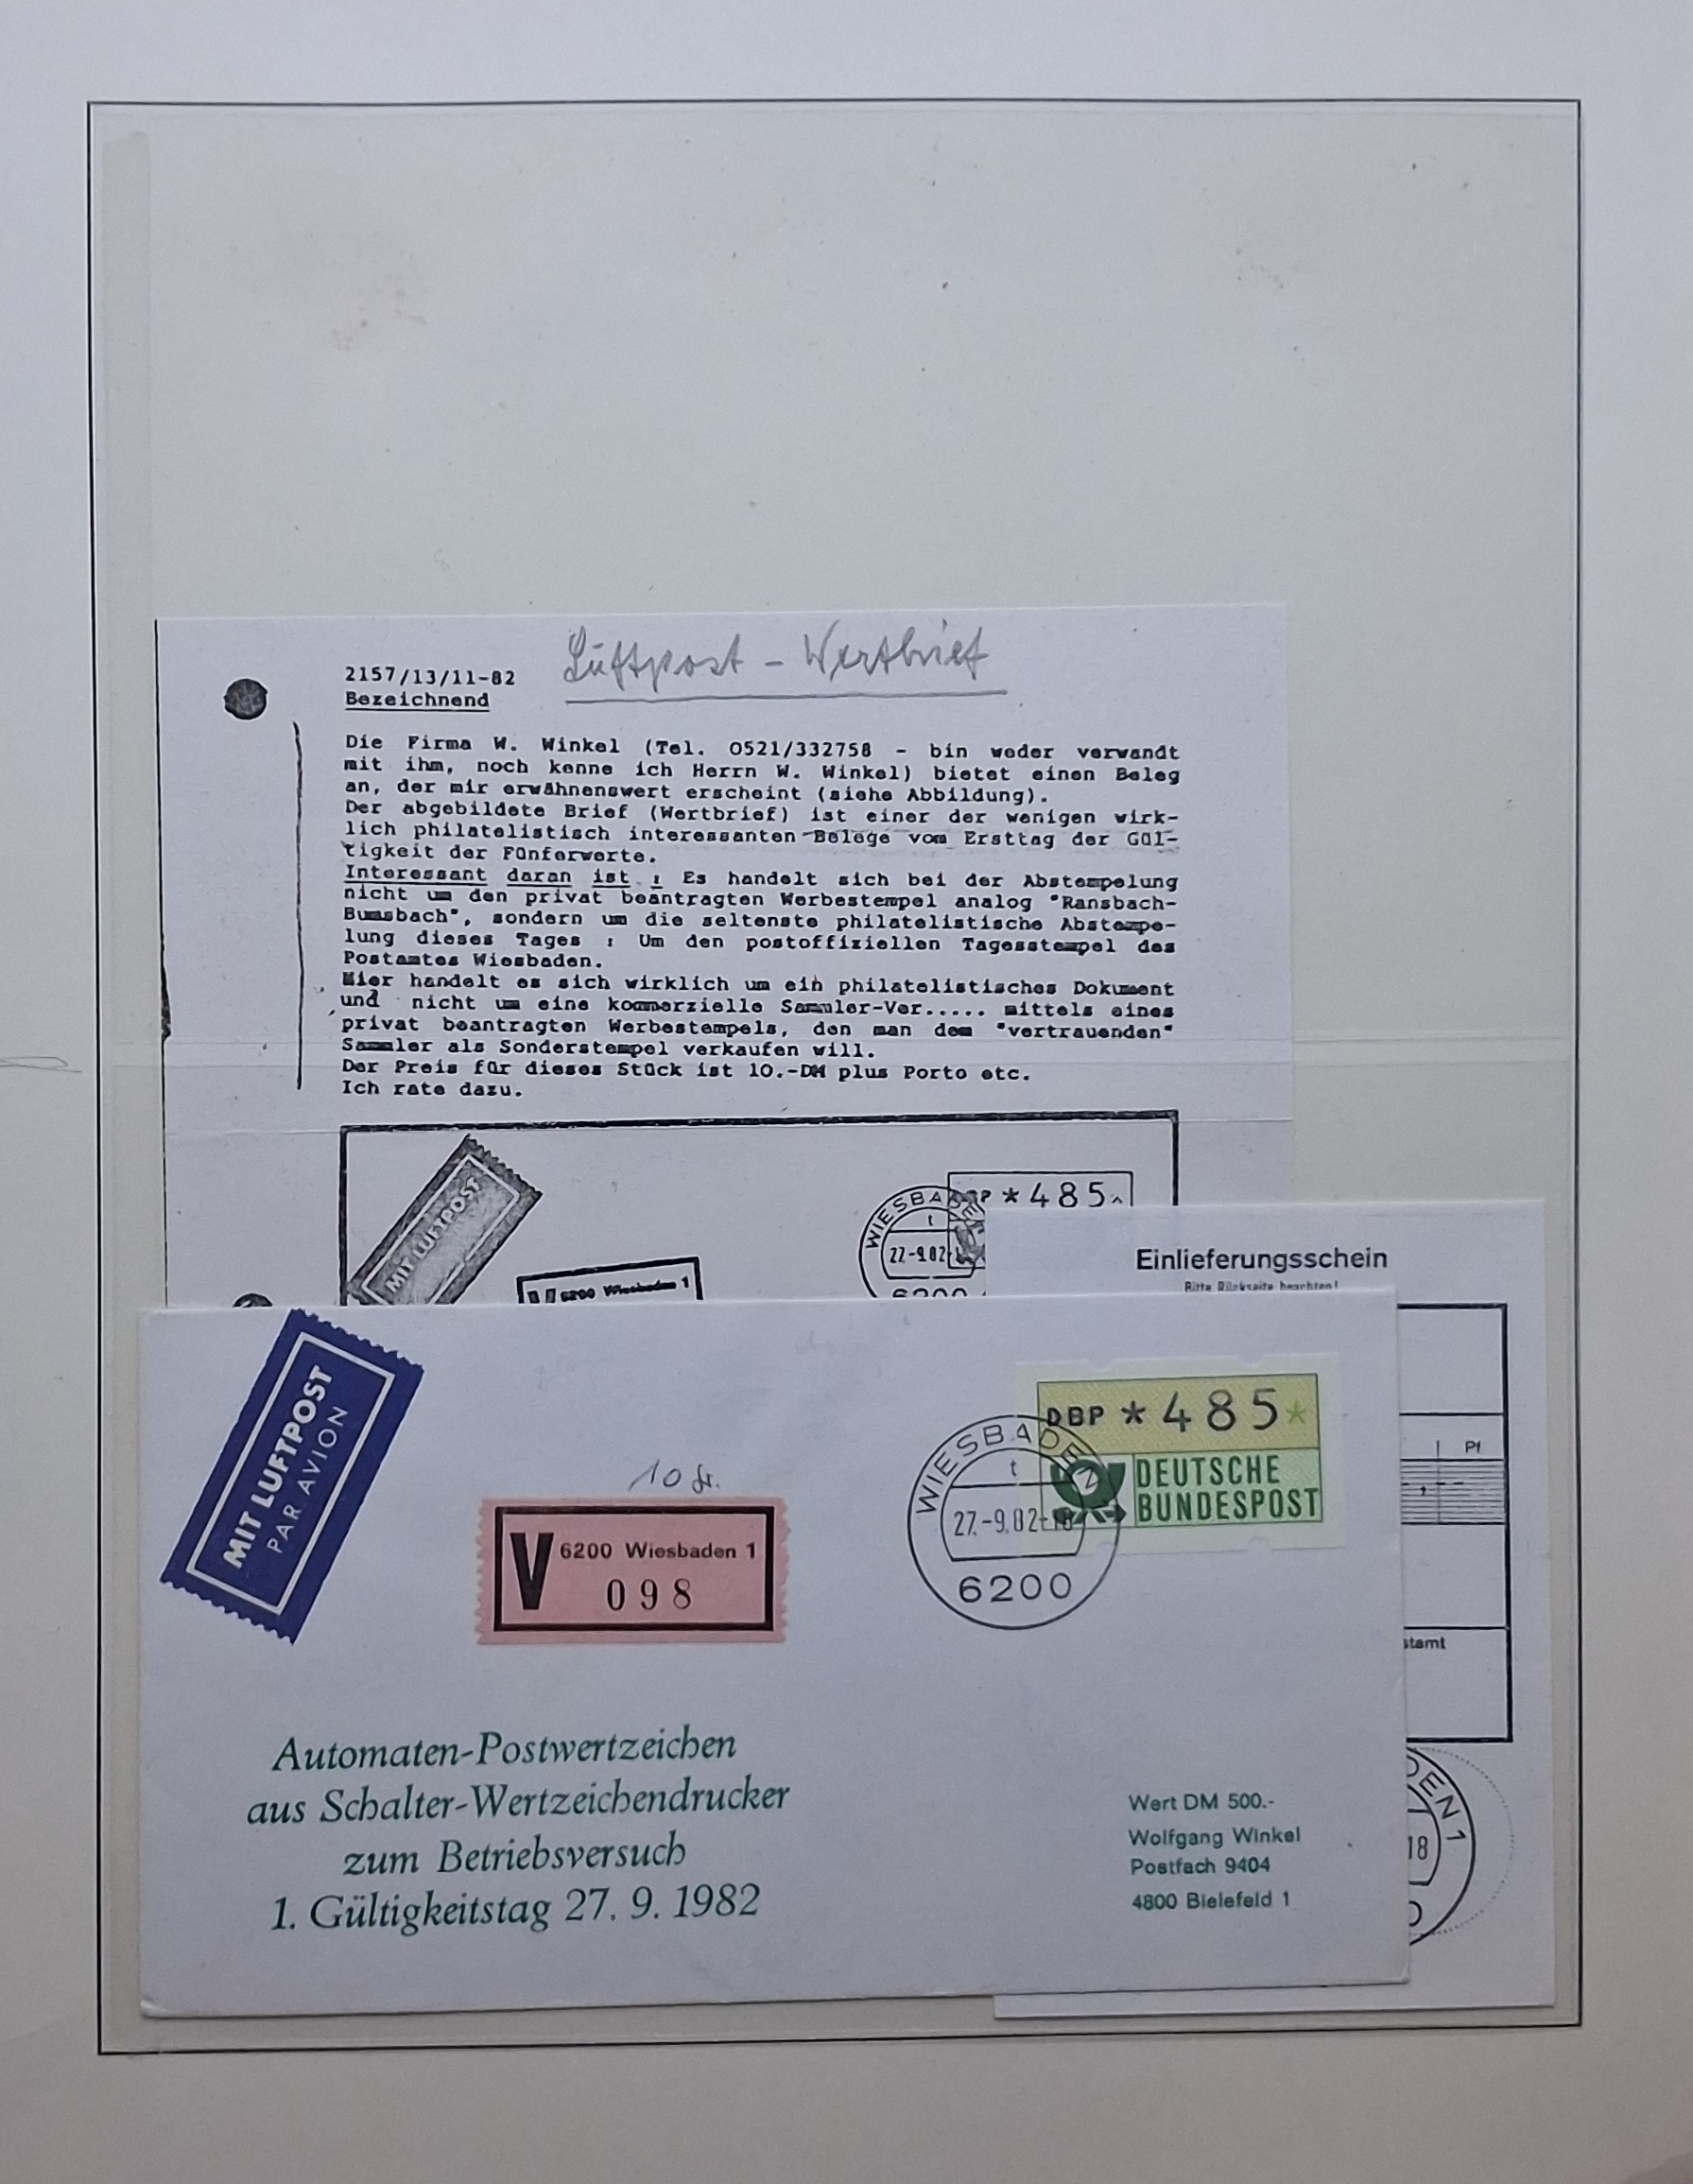 Luftpost - Wertbrief
2157/13/11-82
Bezeichnend
Die Firma W. Winkel (Tel. 0521/332758 - bin weder verwandt
mit ihm, noch kenne ich Herrn W. Winkel) bietet einen Beleg
an, der mir erwähnenswert erscheint (siehe Abbildung).
Der abgebildete Brief (Wertbrief) ist einer der wenigen wirk-
lich philatelistisch interessanten Belege vom Ersttag der Gül-
tigkeit der Fünferwerte.
Interessant daran ist : Es handelt sich bei der Abstempelung
nicht um den privat beantragten Werbestempel analog "Ransbach-
Bumsbach", sondern um die seltenste philatelistische Abstempe-
lung dieses Tages : Um den postoffiziellen Tagesstempel des
Postamtes Wiesbaden.
Hier handelt es sich wirklich um ein philatelistisches Dokument
und nicht um eine kommerzielle Sammler-Ver..... mittels eines
privat beantragten Werbestempels, den man dem "vertrauenden"
Sammler als Sonderstempel verkaufen will.
Der Preis für dieses Stück ist 10.-DM plus Porto etc.
Ich rate dazu.
MIT LUFTPOST
6200 Wiesbaden 1
WIESBADEN
t
27.-9.82
6200
*485
Einlieferungsschein
Bitte Rückseite beachten!
Pf
stamt
DEN 1
18
MIT LUFTPOST
PAR AVION
10 gr.
V 6200 Wiesbaden 1
098
WIESBADEN
t
27.-9.82-18
6200
DBP *485*
DEUTSCHE
BUNDESPOST
Automaten-Postwertzeichen
aus Schalter-Wertzeichendrucker
zum Betriebsversuch
1. Gültigkeitstag 27. 9. 1982
Wert DM 500.-
Wolfgang Winkel
Postfach 9404
4800 Bielefeld 1